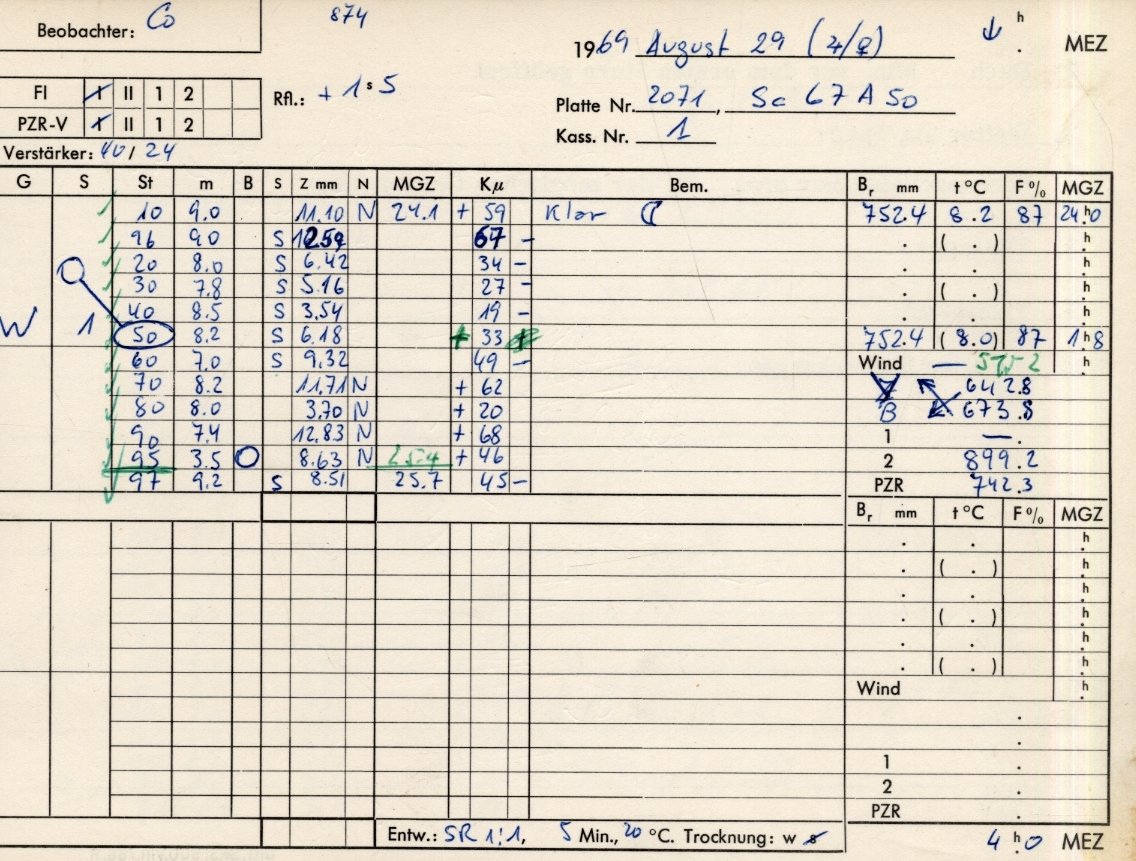 Beobachter: Co
874
1969 August 29 (♃/♀) ↓ h . MEZ
FI I II 1 2
PZR-V I II 1 2
Rfl.: + 1 s 5
Platte Nr. 2071, Sc 67 A 50
Kass. Nr. 1
Verstärker: 40 / 24
G S St m B S Z mm N MGZ Kμ Bem. Br mm t °C F % MGZ
10 9.0 11.10 N 24.1 + 59 Klar ☾ 752.4 8.2 87 24 h 0
96 9.0 S 12.59 67 – . ( . ) h
20 8.0 S 6.42 34 – . . h
30 7.8 S 5.16 27 – . ( . ) h
40 8.5 S 3.54 19 – . . h
W 1 50 8.2 S 6.18 + 33 752.4 ( 8.0) 87 1 h 8
60 7.0 S 9.32 49 – Wind — h
70 8.2 11.71 N + 62 642.8
80 8.0 3.70 N + 20 B 673.8
90 7.4 12.83 N + 68 1 — .
95 3.5 O 8.63 N 25.4 + 46 2 899.2
97 9.2 S 8.51 25.7 45 – PZR 742.3
Br mm t °C F % MGZ
. . h
. ( . ) h
. . h
. ( . ) h
. . h
. ( . ) h
Wind h
.
.
1 .
2 .
PZR .
Entw.: SR 1:1, 5 Min., 20 °C. Trocknung: w s 4 h 0 MEZ